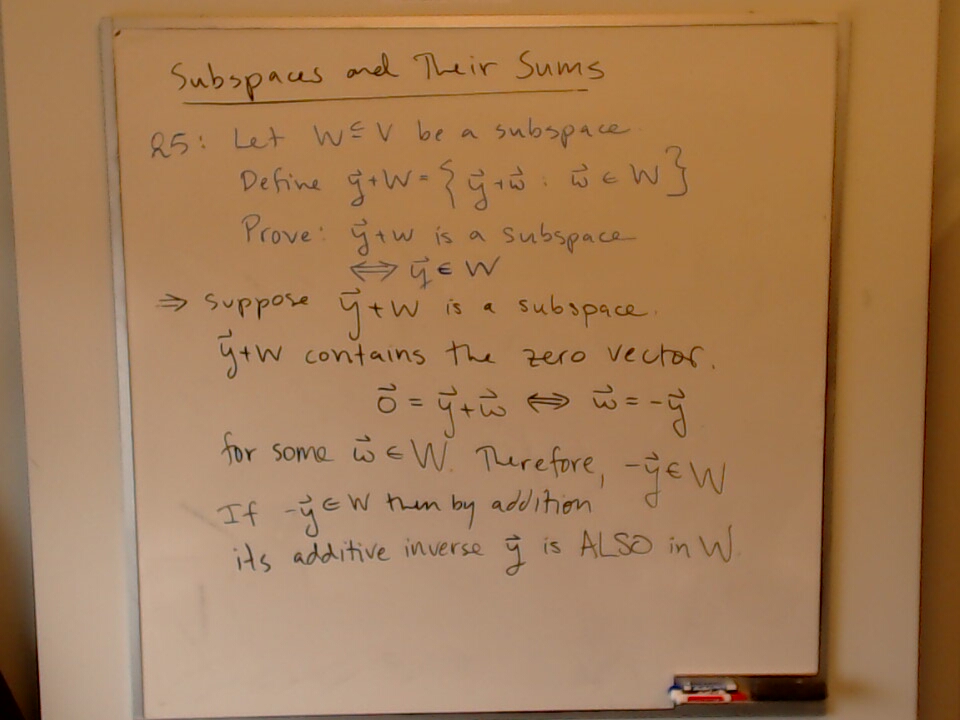 Subspaces and Their Sums
Q5: Let W ⊆ V be a subspace.
Define y⃗+W = { y⃗+w⃗ : w⃗ ∈ W }
Prove: y⃗+W is a subspace
⟺ y⃗ ∈ W
⇒ suppose y⃗+W is a subspace.
y⃗+W contains the zero vector.
0⃗ = y⃗+w⃗ ⟺ w⃗ = -y⃗
for some w⃗ ∈ W. Therefore, -y⃗ ∈ W
If -y⃗ ∈ W then by addition
its additive inverse y⃗ is ALSO in W.